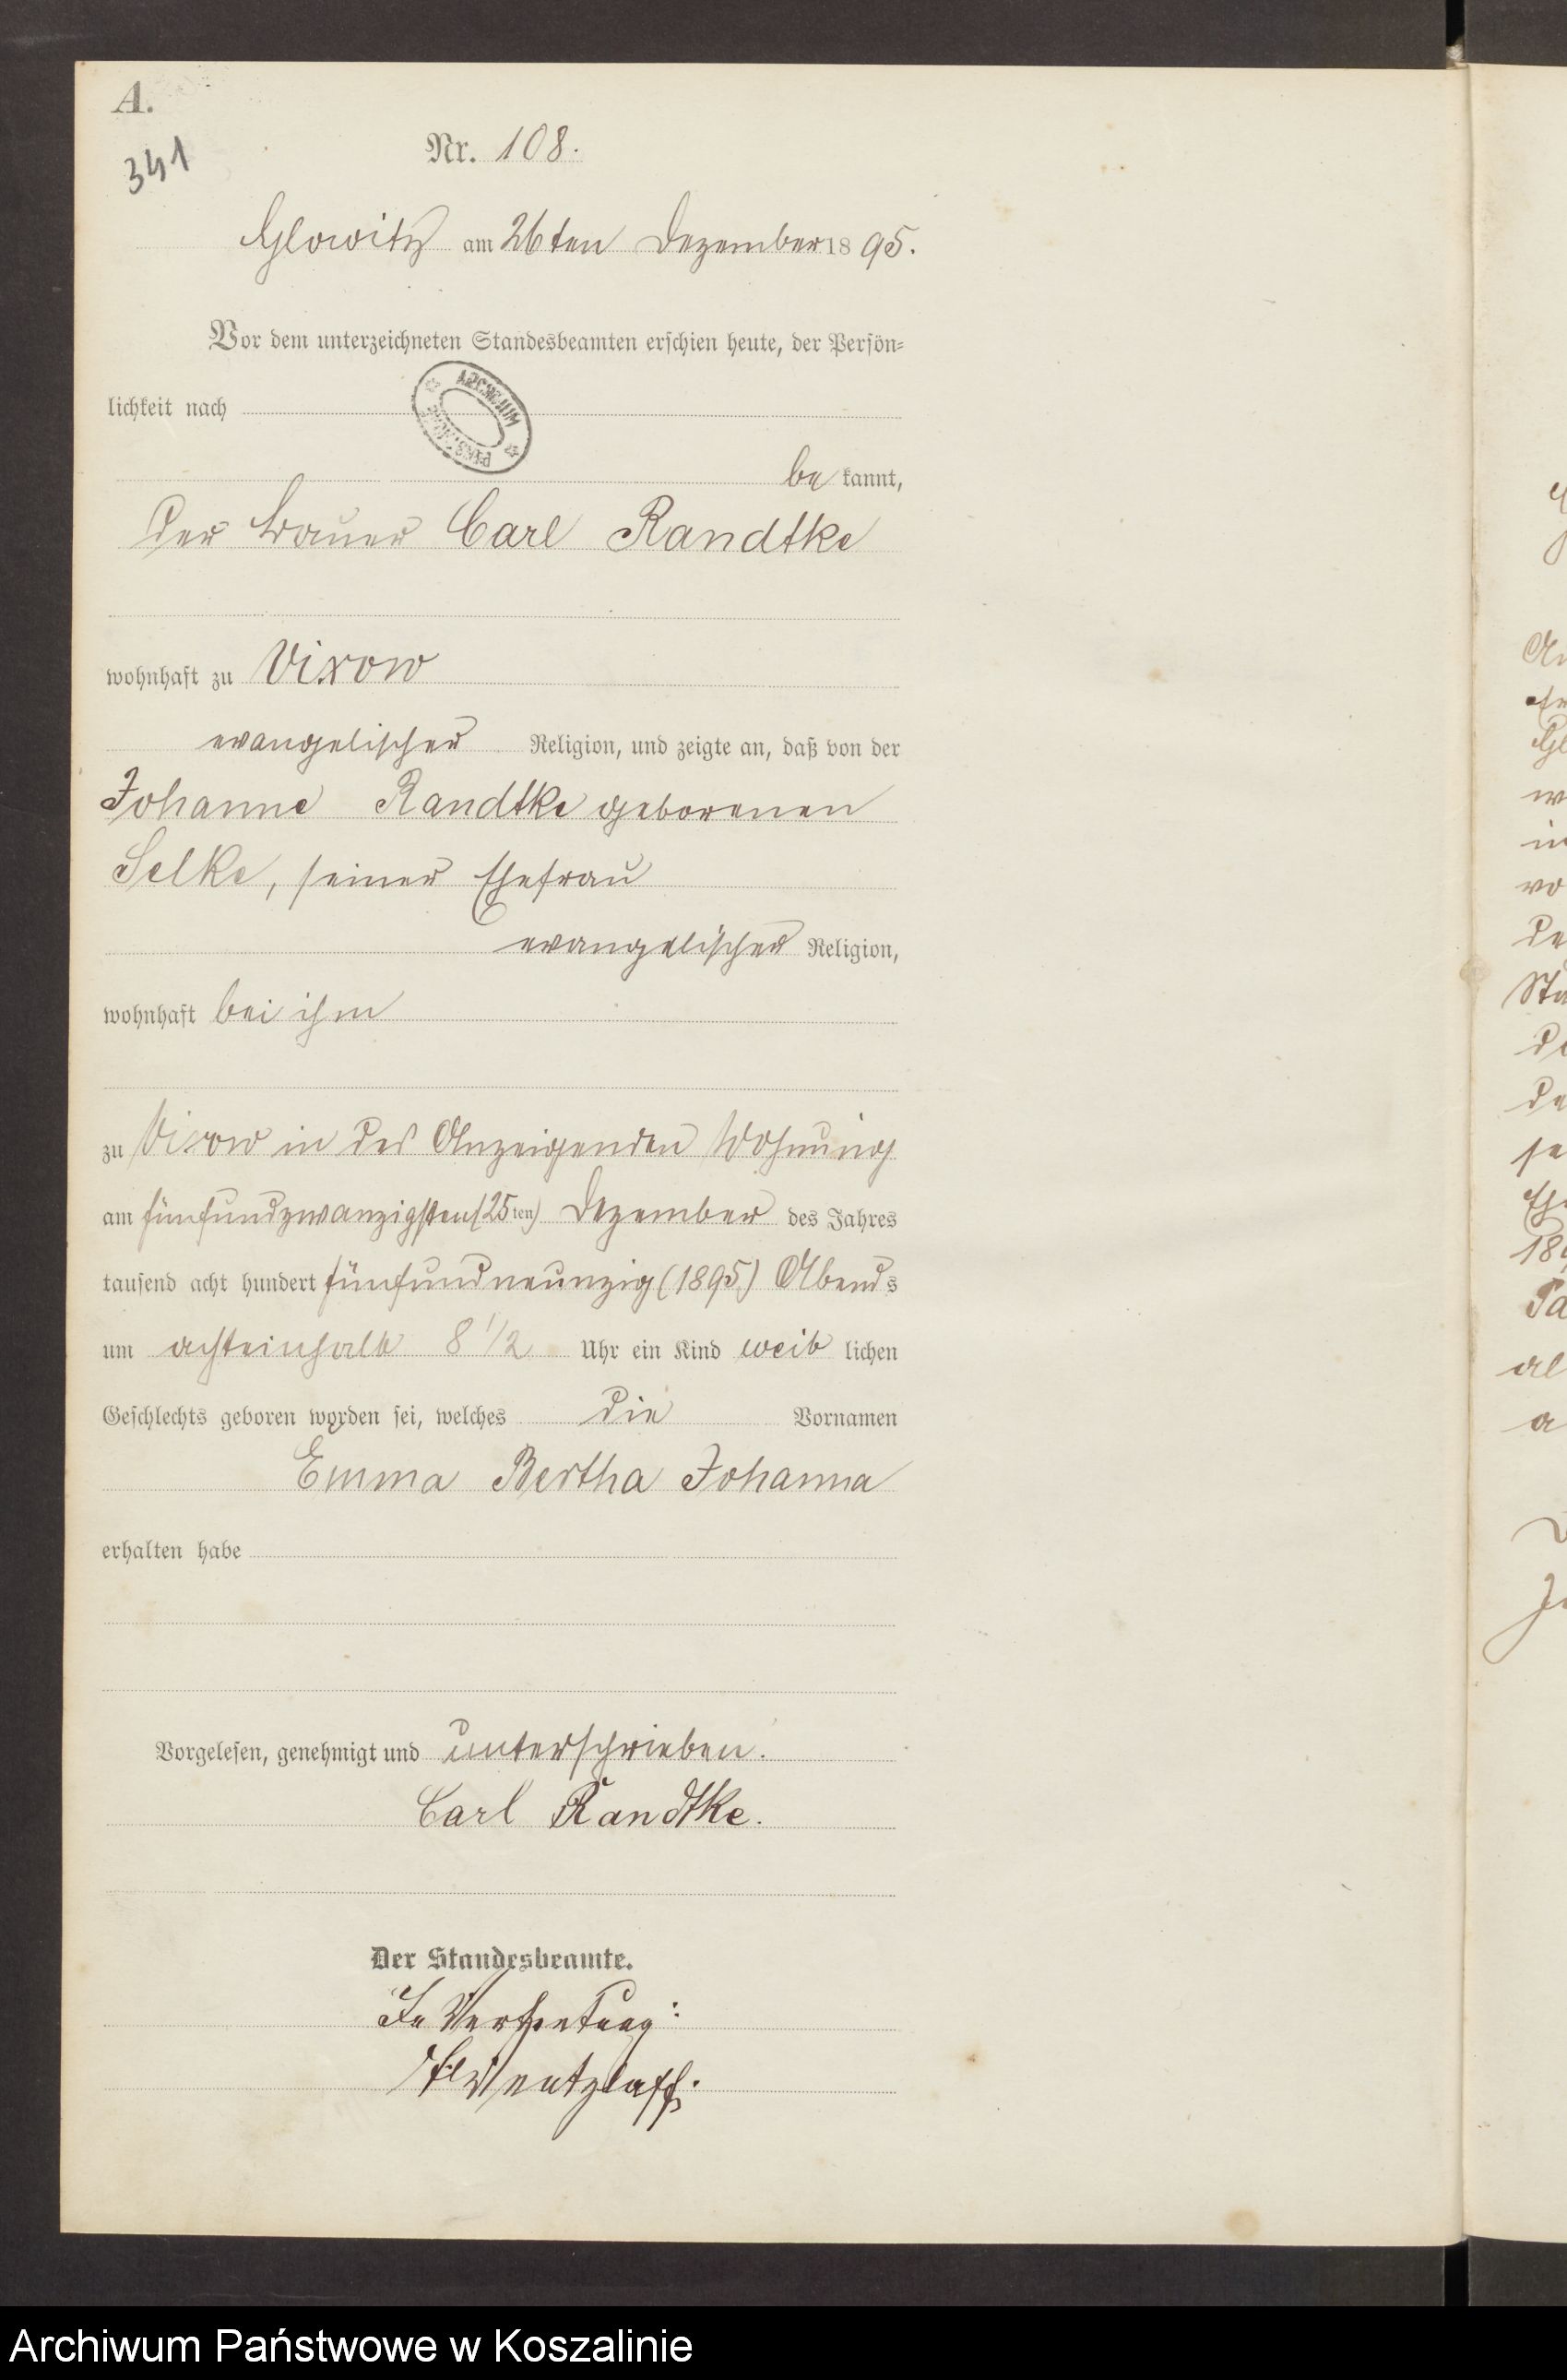 A.
341
Nr. 108.
Glowitz am 26ten Dezember 1895.
Vor dem unterzeichneten Standesbeamten erschien heute, der Persön-
lichkeit nach
ARCHIWUM
be kannt,
der Bauer Carl Randtke
wohnhaft zu Vixow
evangelischer Religion, und zeigte an, daß von der
Johanne Randtke geborenen
Selke, seiner Ehefrau
evangelischer Religion,
wohnhaft bei ihm
zu Vixow in des Anzeigenden Wohnung
am fünfundzwanzigsten (25ten) Dezember des Jahres
tausend acht hundert fünfundneunzig (1895) Abends
um achteinhalb 8 1/2 Uhr ein Kind weib lichen
Geschlechts geboren worden sei, welches die Vornamen
Emma Bertha Johanna
erhalten habe
Vorgelesen, genehmigt und unterschrieben.
Carl Randtke.
Der Standesbeamte.
In Vertretung:
Wentzlaff.
Archiwum Państwowe w Koszalinie